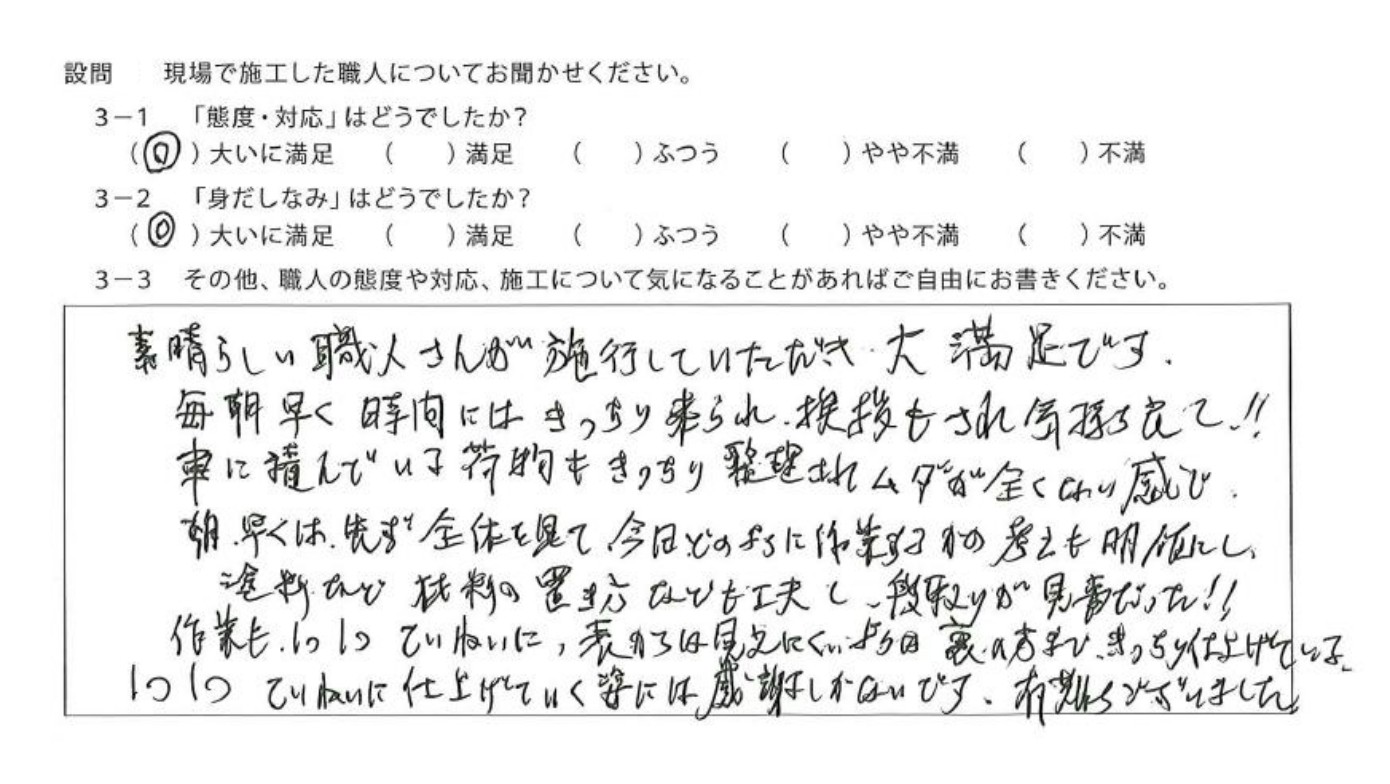 設問 現場で施工した職人についてお聞かせください。
3－1 「態度・対応」はどうでしたか？
(◎)大いに満足 ( )満足 ( )ふつう ( )やや不満 ( )不満
3－2 「身だしなみ」はどうでしたか？
(◎)大いに満足 ( )満足 ( )ふつう ( )やや不満 ( )不満
3－3 その他、職人の態度や対応、施工について気になることがあればご自由にお書きください。
素晴らしい職人さんが施行していただき大満足です.
毎朝早く時間にはきっちり来られ、挨拶もされ気持ち良て!!
車に積んでいる荷物もきっちり整理されムダが全くない感じ.
朝早くは、先ず全体を見て、今日どのように作業するかの考えも明確にし、
塗料など材料の置き方なども工夫し、段取りが見事だった!!
作業も、1つ1つていねいに、表からは見えにくいような裏の方まで、きっちり仕上げている。
1つ1つていねいに仕上げていく姿には感謝しかないです、有難うございました